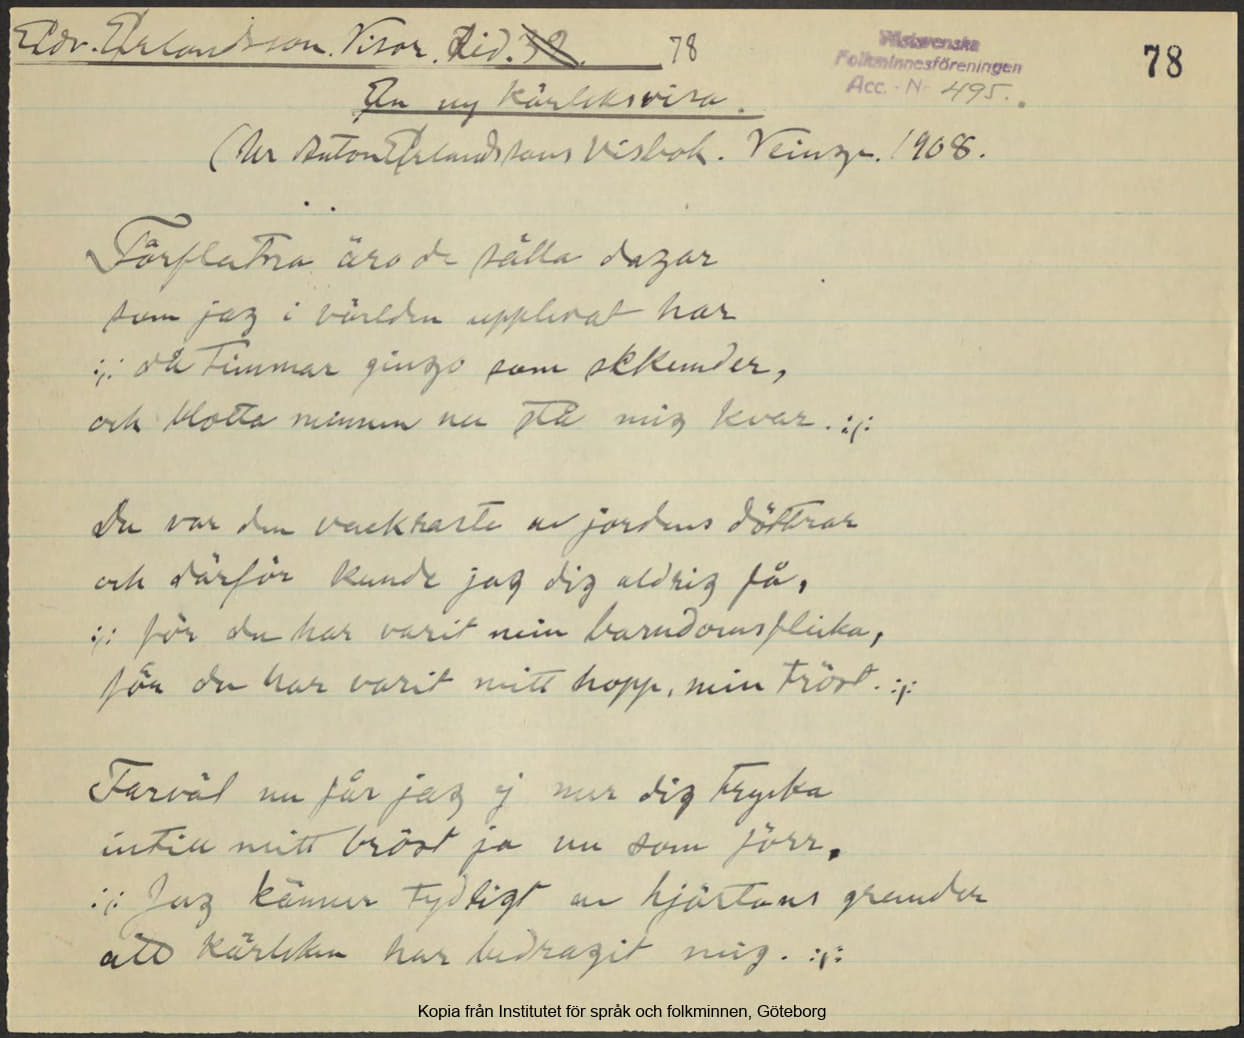 Edv. Erlandsson. Visor. Sid. 32. 78
Västsvenska
Folkminnesföreningen
Acc. - N- 495.
78
En ny kärleksvisa.
(Ur Anton Erlandssons visbok. Veinge. 1908.
Förflutna äro de sälla dagar
som jag i världen upplevat har
:,: då timmar gingo som sekunder,
och blotta minnen nu stå mig kvar. :,:
Du var den vackraste av jordens döttrar
och därför kunde jag dig aldrig få,
:,: för du har varit min barndomsflicka,
för du har varit mitt hopp, min tröst. :,:
Farväl nu får jag ej mer dig trycka
intill mitt bröst ja nu som förr,
:,: Jag känner tydligt av hjärtans grunder
att kärleken har bedragit mig. :,:
Kopia från Institutet för språk och folkminnen, Göteborg